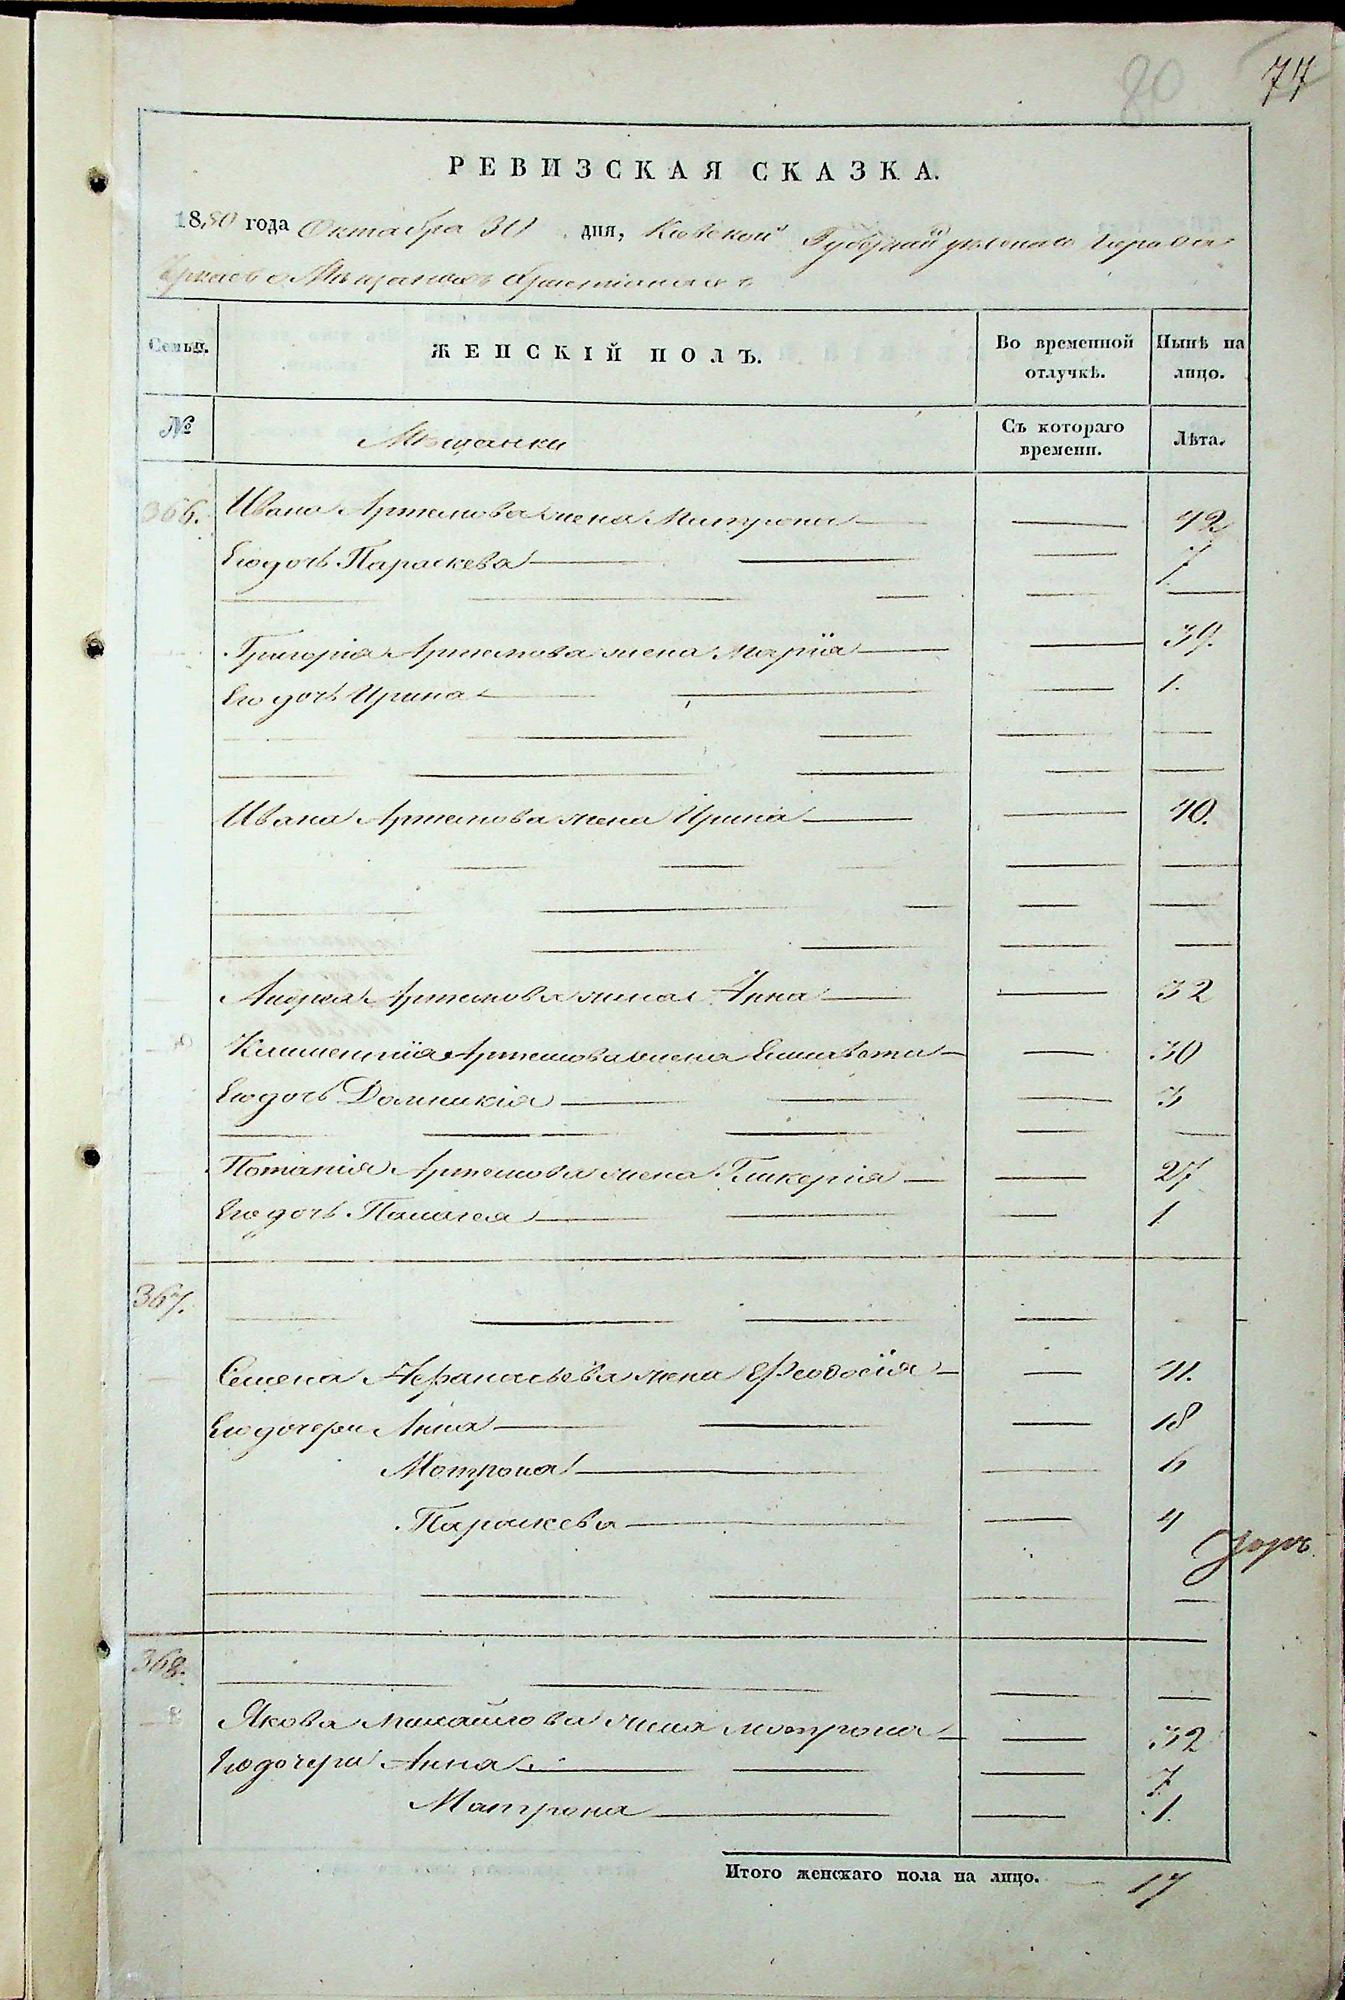 80 77
РЕВИЗСКАЯ СКАЗКА.
1850 года Октября 30 дня, Кіевской Губерніи уѣзднаго города
Черкасъ о Мѣщанахъ христіанахъ
Семьи. ЖЕНСКІЙ ПОЛЪ. Во временной отлучкѣ. Нынѣ на лицо.
№ Мѣщанки Съ котораго времени. Лѣта.
366. Ивана Артемова жена Матрона 42
Его дочь Параскева 7
Григорія Артемова жена Марія 39.
Его дочь Ирина 1.
Ивана Артемова жена Ирина 40.
Андрея Артемова жена Анна 32
Климентія Артемова жена Елисавета 30
Его дочь Домникія 3
Потапія Артемова жена Гликерія 27
Его дочь Палагея 1
367.
Семена Афанасьева жена Феодосія 41.
Его дочери Анна 18
Мотрона 6
Параскева 4
368.
Якова Михайлова жена Мотрона 32
Его дочери Анна 7.
Матрона 1.
Итого женскаго пола на лицо. 17